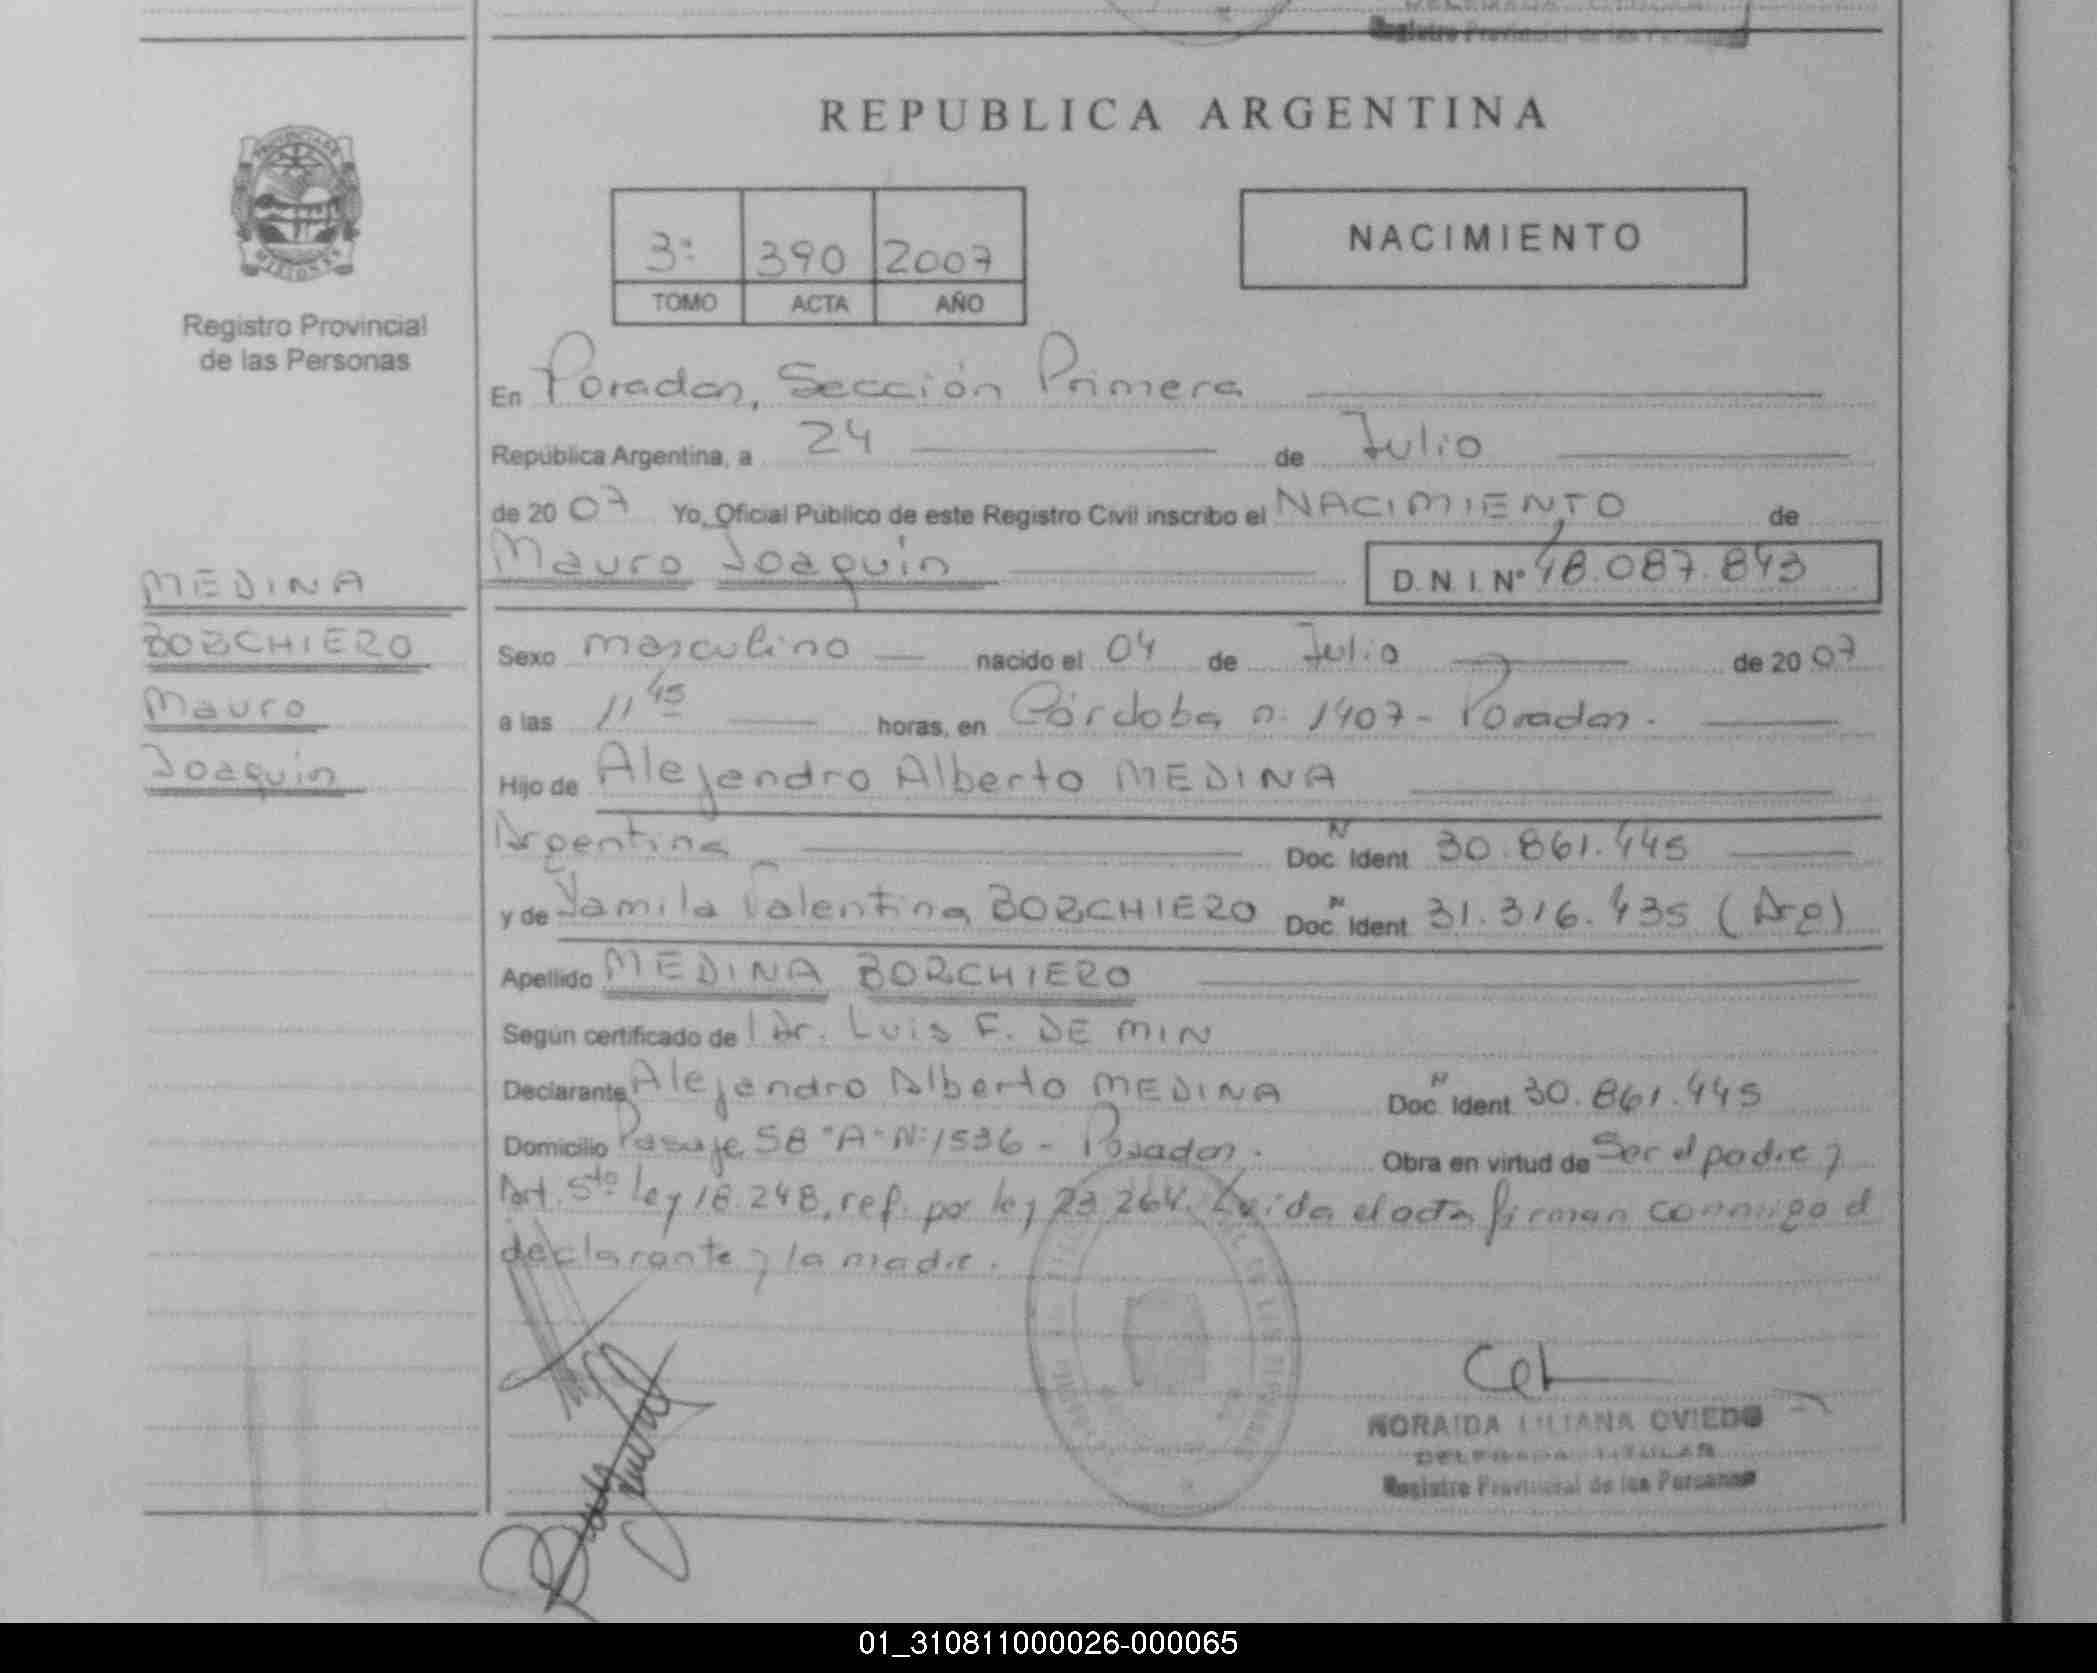 Registro Provincial de las Personas
REPUBLICA ARGENTINA
3º 390 2007
TOMO ACTA AÑO
NACIMIENTO
PROVINCIA DE
MISIONES
Registro Provincial
de las Personas
MEDINA
BORCHIERO
Mauro
Joaquín
En Posadas, Sección Primera
República Argentina, a 24 de Julio
de 2007 Yo, Oficial Público de este Registro Civil inscribo el NACIMIENTO de
Mauro Joaquín D.N.I. Nº 48.087.843
Sexo masculino nacido el 04 de Julio de 2007
a las 11 45 horas, en Córdoba nº 1407 - Posadas.
Hijo de Alejandro Alberto MEDINA
Argentina Doc. Ident Nº 30.861.445
y de Yamila Valentina BORCHIERO Doc. Ident Nº 31.316.435 (Arg)
Apellido MEDINA BORCHIERO
Según certificado de l Dr. Luis F. DE MIN
Declarante Alejandro Alberto MEDINA Doc. Ident Nº 30.861.445
Domicilio Pasaje 58 "A" Nº 1536 - Posadas. Obra en virtud de Ser el padre y
Art. 5to ley 18.248, ref. por ley 23.264. Leída el acta firman conmigo el
declarante y la madre.
NORAIDA LILIANA OVIEDO
DELEGADA TITULAR
Registro Provincial de las Personas
01_310811000026-000065